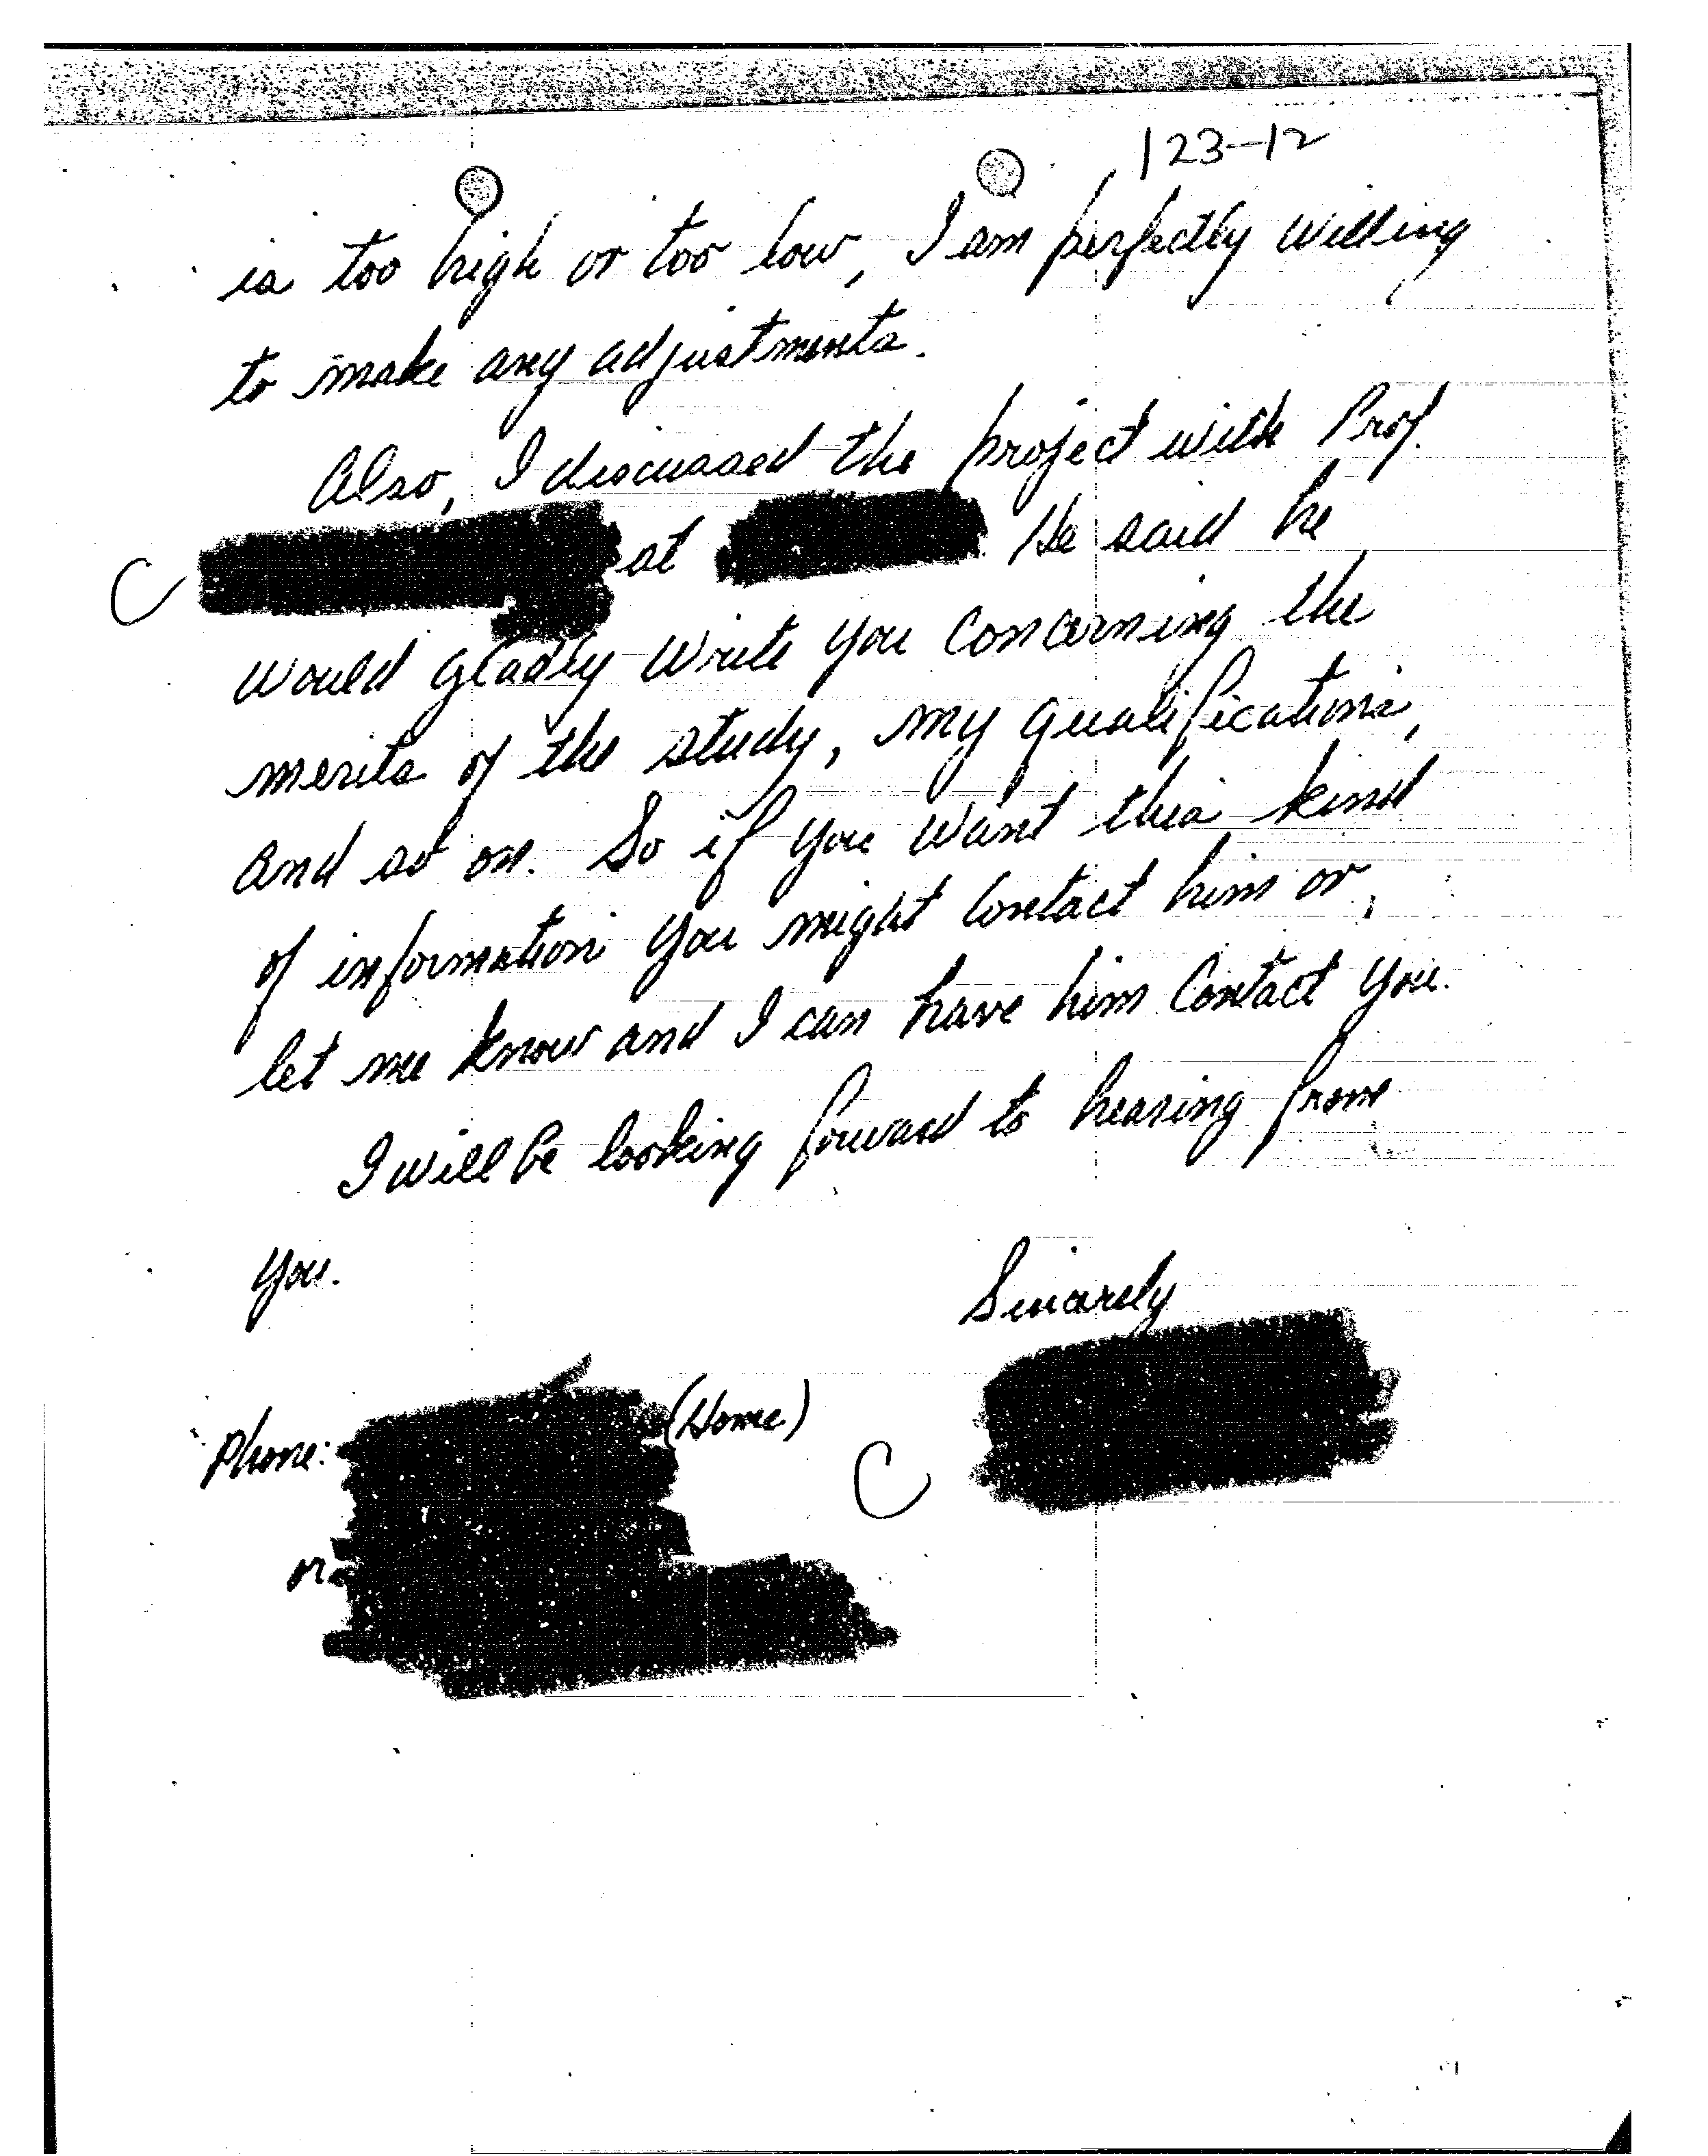 123-12
is too high or too low, I am perfectly willing
to make any adjustments.
Also, I discussed the project with Prof.
C at . He said he
would gladly write you concerning the
merits of the study, my qualifications,
and so on. So if you want this kind
of information you might contact him or,
let me know and I can have him contact you.
I will be looking forward to hearing from
you.
Sincerely
Phone: (Home)
C
or